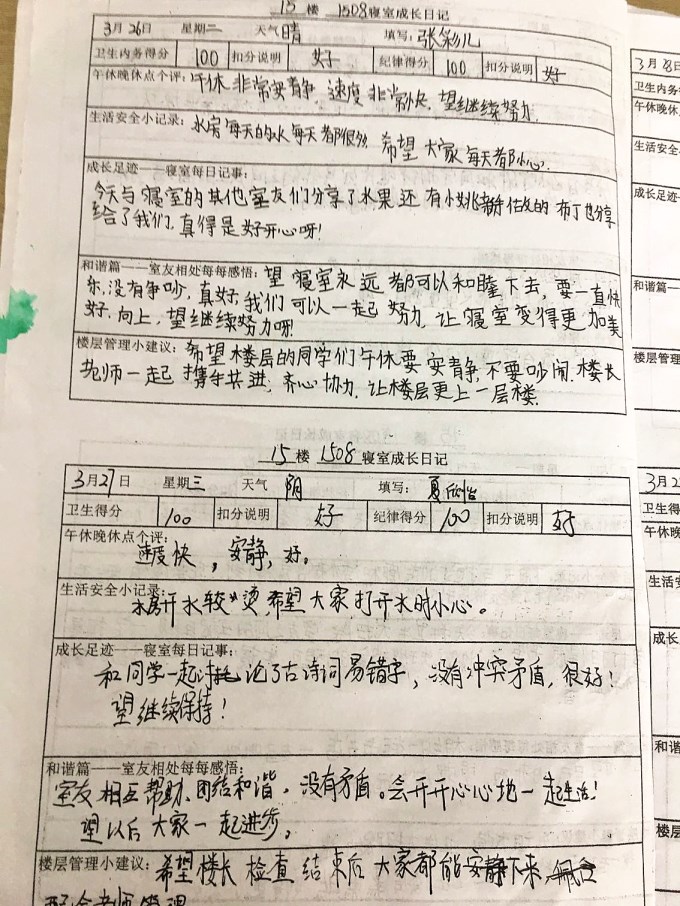 15 楼 1508 寝室成长日记
3月26日 星期二 天气 晴 填写: 张彩儿
卫生内务得分 100 扣分说明 好 纪律得分 100 扣分说明 好
午休晚休点个评: 午休非常安静 速度非常快,望继续努力.
生活安全小记录: 水房每天的水每天都很多 希望大家每天都小心.
成长足迹——寝室每日记事:
今天与寝室的其他室友们分享了水果还有小姚静 的布丁也分享
给了我们,真得是好开心呀!
和谐篇——室友相处每每感悟: 望寝室永远都可以和睦下去,要一直快
乐,没有争吵,真好,我们可以一起努力,让寝室变得更加美
好.向上,望继续努力呀!
楼层管理小建议: 希望楼层的同学们午休要安静,不要吵闹.楼长
老师一起携手共进,齐心协力,让楼层更上一层楼.
15 楼 1508 寝室成长日记
3月27日 星期三 天气 阴 填写: 夏欣怡
卫生得分 100 扣分说明 好 纪律得分 100 扣分说明 好
午休晚休点个评:
速度快,安静,好。
生活安全小记录:
水房开水较烫,希望大家打开水时小心。
成长足迹——寝室每日记事:
和同学一起讨论了古诗词易错字,没有冲突矛盾,很好!
望继续保持!
和谐篇——室友相处每每感悟:
室友相互帮助、团结和谐,没有矛盾。会开开心心地一起生活!
望以后大家一起进步。
楼层管理小建议: 希望楼长检查结束后大家都能安静下来,
配合老师管理
3月
卫生内务
午休晚休
生活安全
成长足迹
和谐篇—
楼层管理
3月2
卫生得
午休晚
生活
成长
和谐
楼层